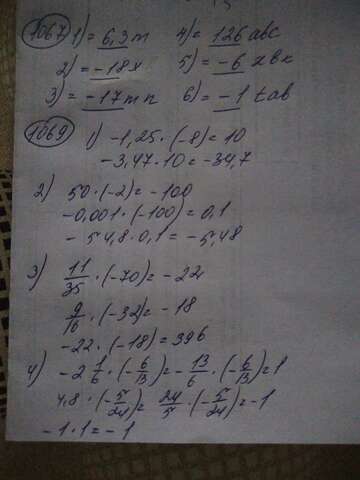 1067 1) = 6,3m 4) = 126 abc
2) = -18x 5) = -6 xbk
3) = -17mn 6) = -1 tab
1069 1) -1,25 · (-8) = 10
-3,47 · 10 = -34,7
2) 50 · (-2) = -100
-0,001 · (-100) = 0,1
-54,8 · 0,1 = -5,48
3) 11/35 · (-70) = -22
9/16 · (-32) = -18
-22 · (-18) = 396
4) -2 1/6 · (-6/13) = -13/6 · (-6/13) = 1
4,8 · (-5/24) = 24/5 · (-5/24) = -1
-1 · 1 = -1